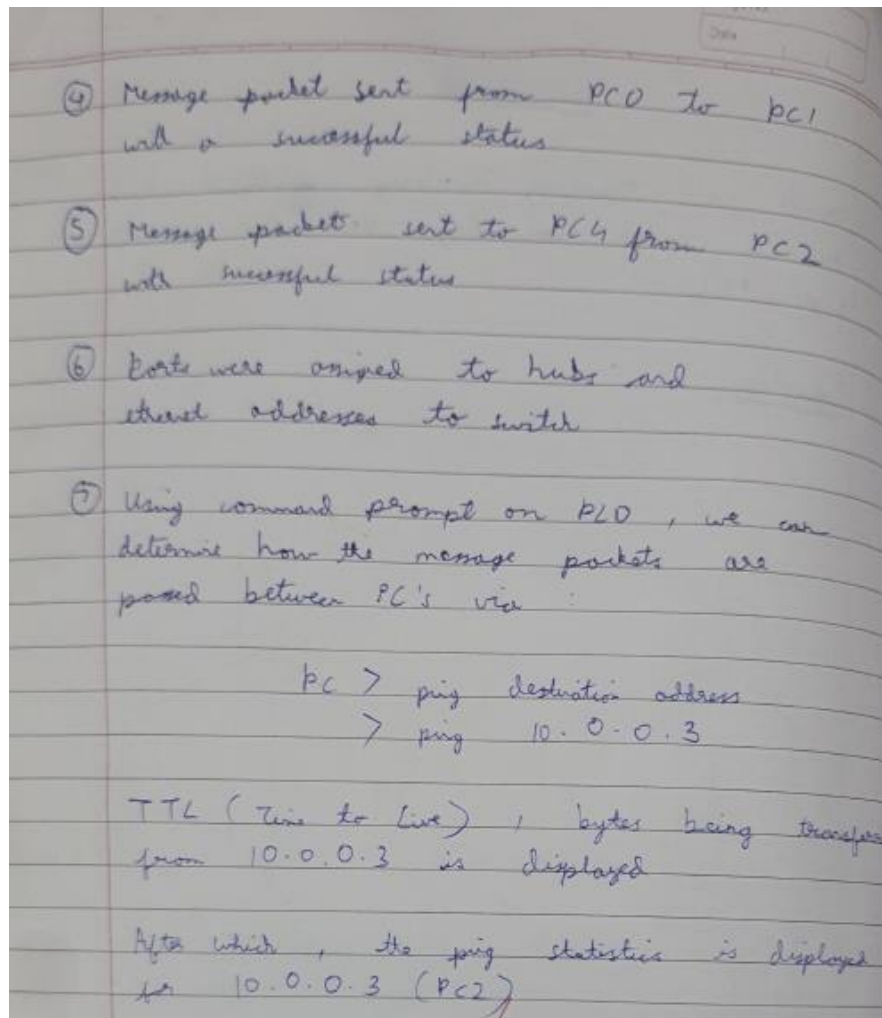 Date
④ Message packet sent from PC0 to PC1
with a successful status
⑤ Message packet sent to PC4 from PC2
with successful status
⑥ Ports were assigned to hubs and
ethernet addresses to switch
⑦ Using command prompt on PC0, we can
determine how the message packets are
passed between PC's via :
PC > ping destination address
> ping 10.0.0.3
TTL (Time to Live), bytes being transfer
from 10.0.0.3 is displayed
After which, the ping statistics is displayed
for 10.0.0.3 (PC2)